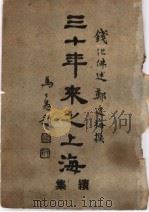 錢化佛述 鄭逸梅撰
三十年來之上海
續集
馬公愚題